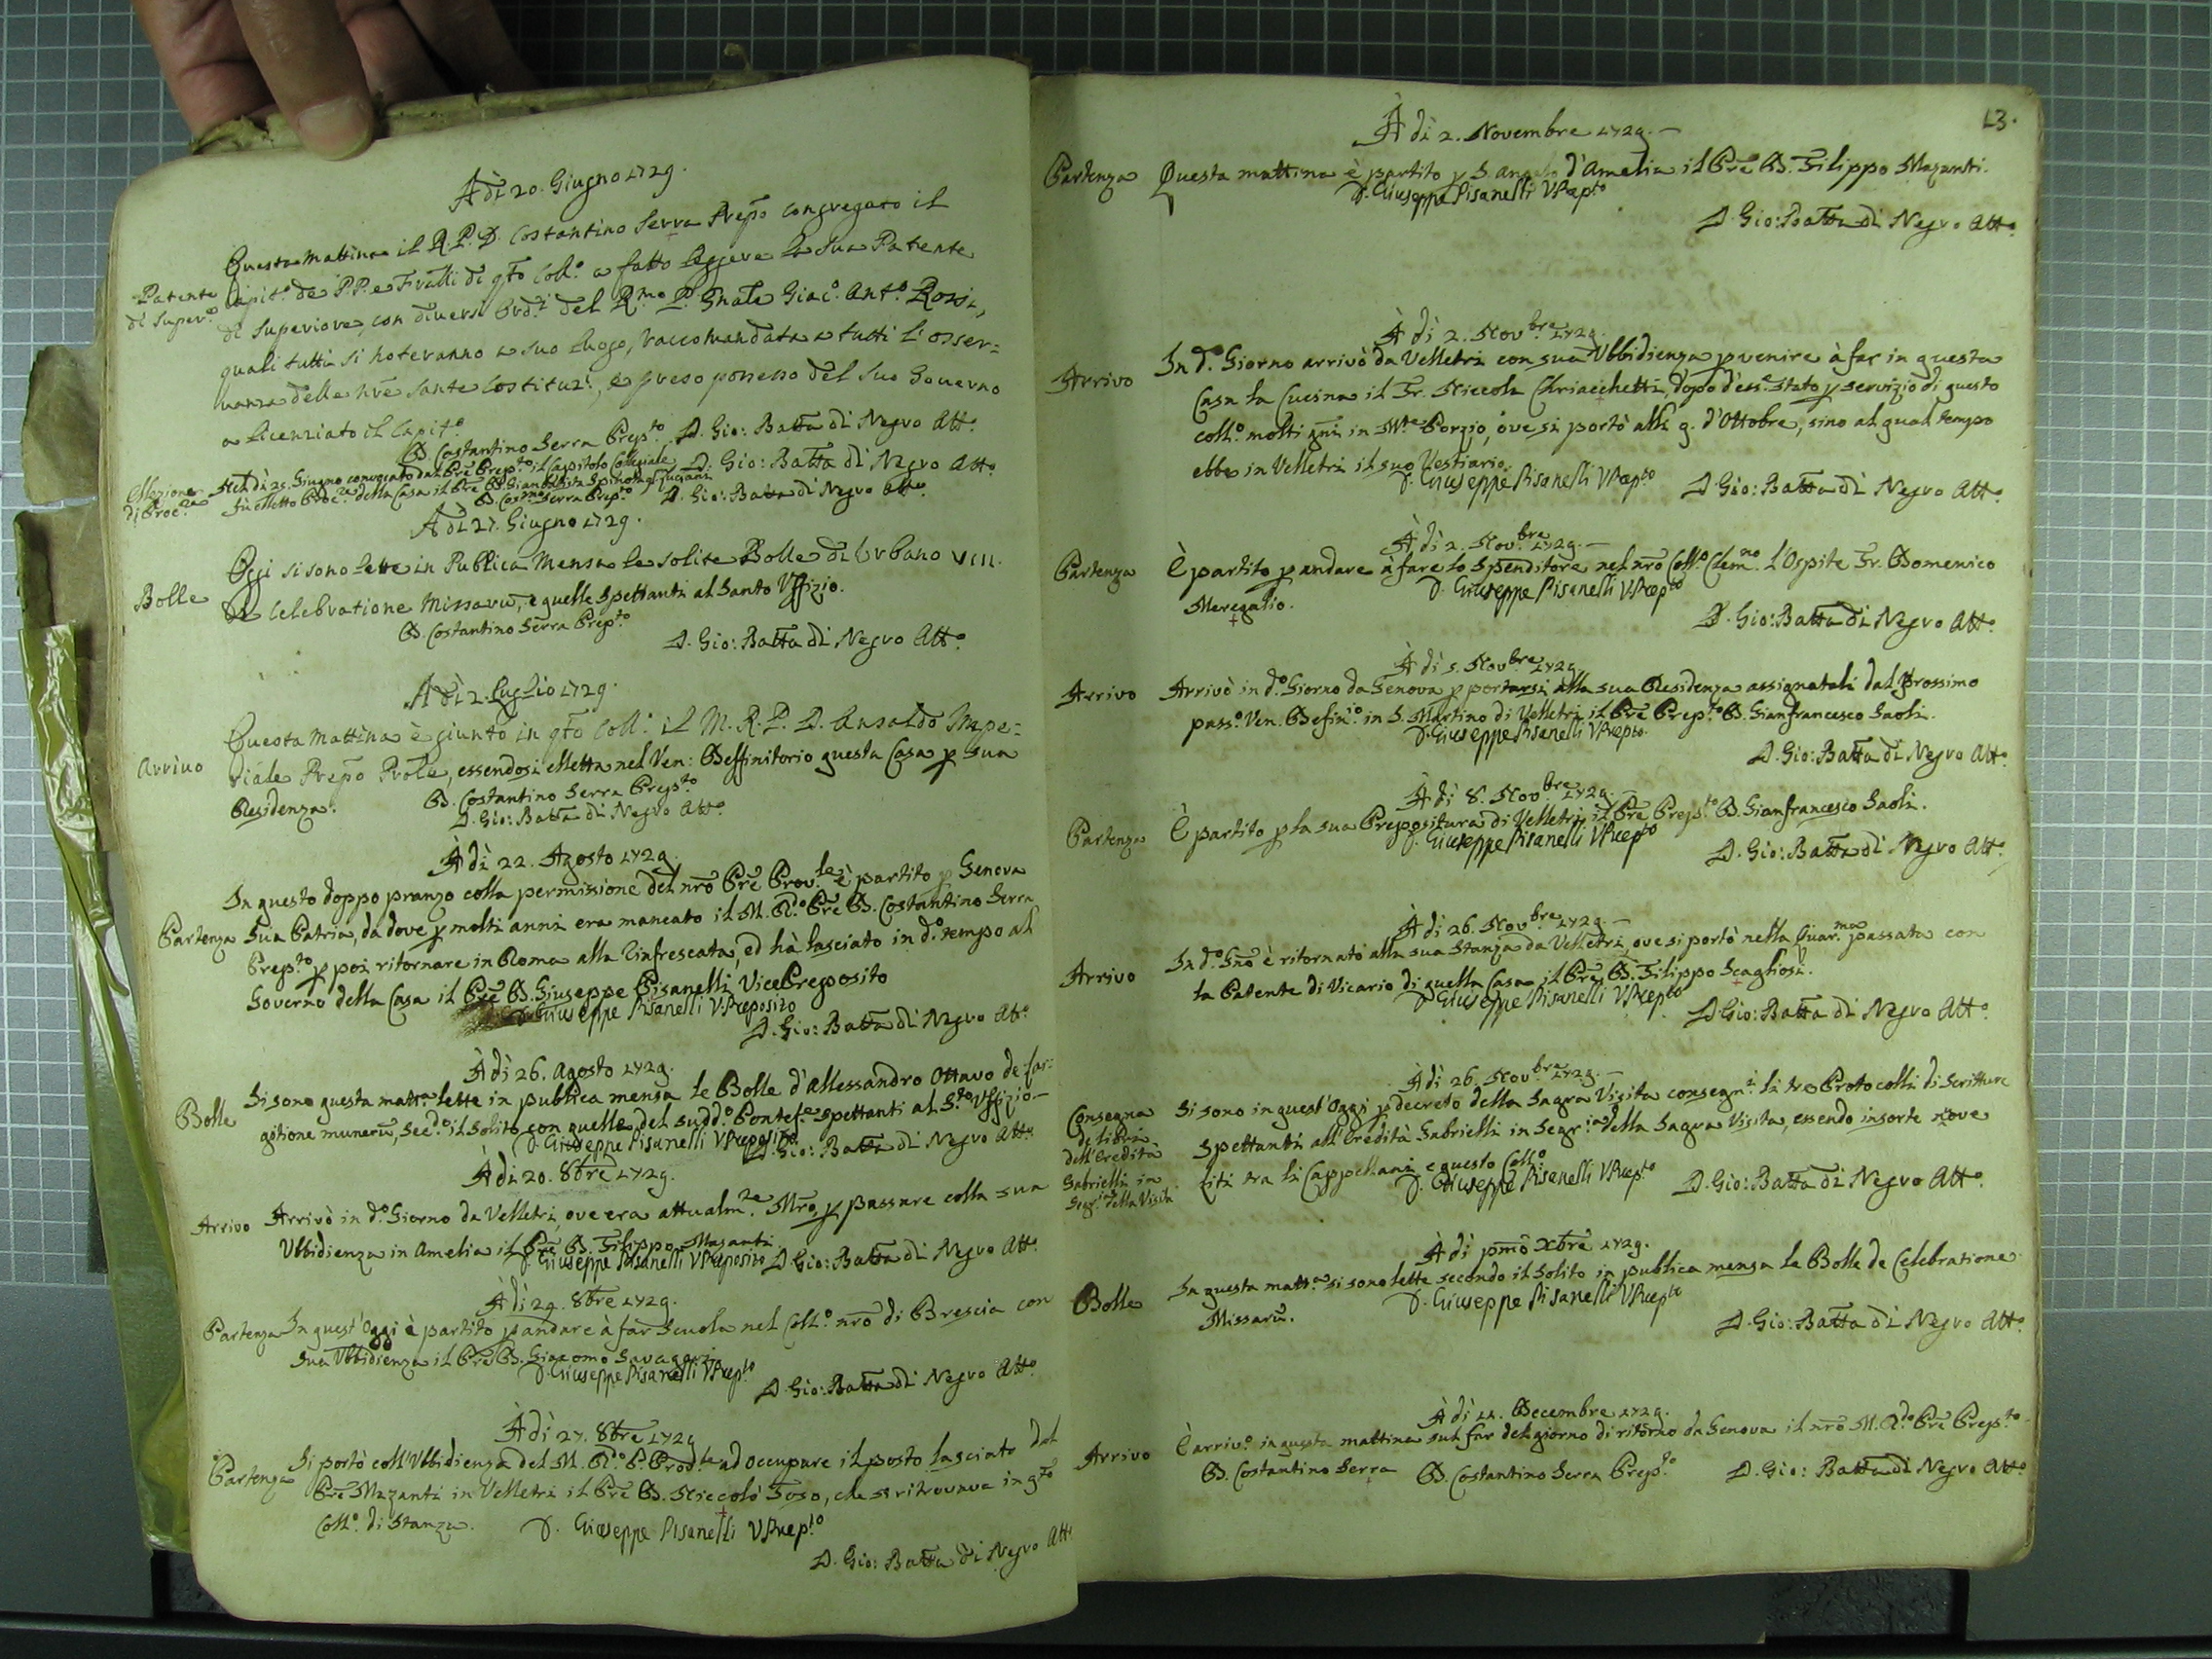 À dì 20. Giugno 1729.
Questa mattina il R. P. D. Costantino Serra Prep̃o congregato il
Patente di Super.e
Capit.o de P.P. e Fratelli di q̃to Coll.o a fatto leggere la sua Patente
di Superiore, con diversi Ord.i del R.mo P. Gñale Giac.o Ant.o Rossi,
quali tutti si noteranno a suo luogo, raccomandata a tutti l'osser=
vanza delle nr̃e Sante Costituz.i, e preso possesso del suo Governo
a licenziato il Capit.o
D. Costantino Serra Prep.to D. Gio: Batt̃a di Negro Att.o
Elezione di Proc.re
Nel dì 25. Giugno convocato dal Prẽ Prep.to il Capitolo Collegiale D. Gio: Batt̃a di Negro Att.o
fù eletto Proc.re della Casa il Prẽ D. Giambatista Spinola
D. Cos.no Serra Prep.to D. Gio: Batt̃a di Negro Att.o
À dì 27. Giugno 1729.
Bolle
Oggi si sono lette in Publica Mensa le solite Bolle di Urbano VIII.
de Celebratione Missarũ, e quelle spettanti al Santo Uffizio.
D. Costantino Serra Prep.to
D. Gio: Batt̃a di Negro Att.o
À dì 2. Luglio 1729.
Questa Mattina è giunto in q̃to Coll.o il M. R. P. D. Ansaldo Impe=
Arrivo
riale Prep̃o Prõle, essendosi elletta nel Ven: Deffinitorio questa Casa p sua
Residenza. D. Costantino Serra Prep.to
D. Gio: Batt̃a di Negro Att.o
À dì 22. Agosto 1729.
In questo doppo pranzo colla permissione del nrõ Prẽ Prov.le è partito p Genova
Partenza
sua Patria, da dove p molti anni era mancato il M. R.do Prẽ D. Costantino Serra
Prep.to p poi ritornare in Roma alla rinfrescata, ed hà lasciato in d.o tempo al
Governo della Casa il Prẽ D. Giuseppe Pisanelli VicePreposito
D. Giuseppe Pisanelli VPreposito
D. Gio: Batt̃a di Negro Att.o
À dì 26. Agosto 1729.
Bolle
Si sono questa matt.a lette in publica mensa le Bolle d'Allessandro Ottavo de Lar=
gitione munerũ, sec.do il solito con quelle del sudd.o Pontef.e spettanti al S.to Uffizio.
D. Giuseppe Pisanelli VPreposito
D. Gio: Batt̃a di Negro Att.o
À dì 20. 8brẽ 1729.
Arrivo
Arrivò in d.o Giorno da Velletri, ove era attualm.te Mrõ, p passare colla sua
Ubbidienza in Amelia il Prẽ D. Filippo Mazanti
D. Giuseppe Pisanelli VPreposito D. Gio: Batt̃a di Negro Att.o
À dì 29. 8brẽ 1729.
Partenza
In quest'Oggi è partito p andare à far Scuola nel Coll.o nrõ di Brescia con
sua Ubbidienza il Prẽ D. Giacomo
D. Giuseppe Pisanelli VPrep.to
D. Gio: Batt̃a di Negro Att.o
À dì 27. 8brẽ 1729
Partenza
Si portò coll'Ubbidienza del M. R.do P. Prov.le ad occupare il posto lasciato dal
Prẽ Mazanti in Velletri il Prẽ D. Niccolò Toso, che si ritrovava in q̃to
Coll.o di Stanza.
D. Giuseppe Pisanelli VPrep.to
D. Gio: Batt̃a di Negro Att.o
13.
À dì 2. Novembre 1729.
Partenza
Questa mattina è partito p S. Angelo d'Amelia il Prẽ D. Filippo Mazanti.
D. Giuseppe Pisanelli VPrep.to
D. Gio: Batt̃a di Negro Att.o
À dì 2. Nov.bre 1729.
Arrivo
In d.o Giorno arrivò da Velletri con sua Ubbidienza p venire à far in questa
Casa la Cucina il Fr. Niccola Chriacchetti, dopo d'ess.e stato p servizio di questo
coll.o molti gñi in M.te Porzio, ove si portò alli 9. d'Ottobre, sino al qual tempo
ebbe in Velletri il suo Vestiario.
D. Giuseppe Pisanelli VPrep.to
D. Gio: Batt̃a di Negro Att.o
À dì 2. Nov.bre 1729.
Partenza
È partito p andare à fare lo Spenditore nel nrõ Coll.o Clem.no l'Ospite Fr. Domenico
Meregalio.
D. Giuseppe Pisanelli VPrep.to
D. Gio: Batt̃a di Negro Att.o
À dì 5. Nov.bre 1729.
Arrivo
Arrivò in d.o Giorno da Genova p portarsi alla sua Residenza assignatali dal prossimo
pass.o Ven. Defin.io in S. Martino di Velletri il Prẽ Prep.to D. Gianfrancesco Saoli.
D. Giuseppe Pisanelli VPrepto.
D. Gio: Batt̃a di Negro Att.o
À dì 8. Nov.bre 1729.
Partenza
È partito p la sua Prepositura di Velletri il Prẽ Prep.to D. Gianfrancesco Saoli.
D. Giuseppe Pisanelli VPrep.to
D. Gio: Batt̃a di Negro Att.o
À dì 26. Nov.bre 1729.
Arrivo
In d.o Gnõ è ritornato alla sua Stanza da Velletri, ove si portò nella Quar.ma passata con
la Patente di Vicario di quella Casa il Prẽ D. Filippo Scagliosi.
D. Giuseppe Pisanelli VPrep.to
D. Gio: Batt̃a di Negro Att.o
À dì 26. Nov.bre 1729.
Consegna de libri dell'Eredita Gabrielli in Segr.ia della Visita
Si sono in quest'Oggi p decreto della Sagra Visita consegn.i li tre Protocolli di Scritture
spettanti all'Eredità Gabrielli in Segr.ia della Sagra Visita, essendo insorte nove
liti tra li Cappellani e questo Coll.o
D. Giuseppe Pisanelli VPrep.to
D. Gio: Batt̃a di Negro Att.o
À dì pmõ Xbrẽ 1729.
Bolle
In questa matt.a si sono lette secondo il solito in publica mensa le Bolle de Celebratione
Missarũ.
D. Giuseppe Pisanelli VPrep.to
D. Gio: Batt̃a di Negro Att.o
À dì 11. Decembre 1729.
Arrivo
È arriv.o in questa mattina sul far del giorno di ritorno da Genova il nrõ M. R.do Prẽ Prep.to
D. Costantino Serra D. Costantino Serra Prep.to D. Gio: Batt̃a di Negro Att.o